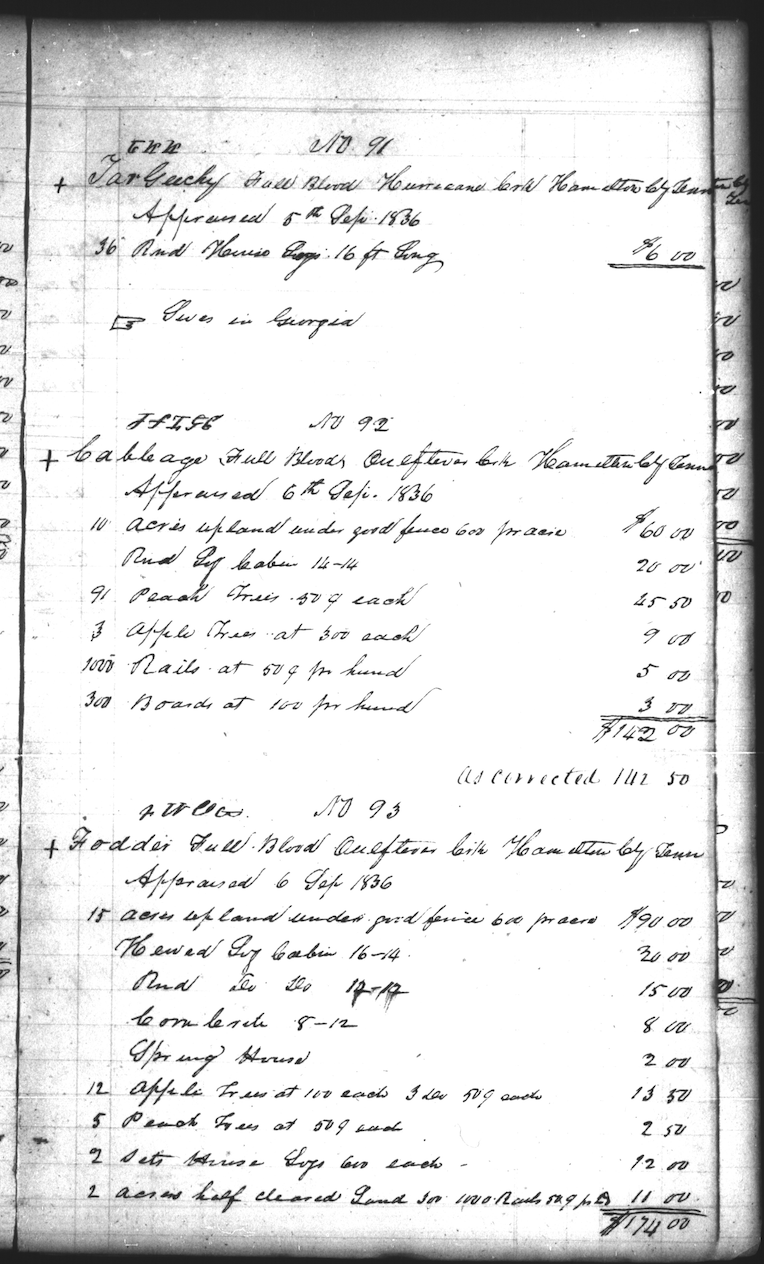 No 91
+ Tar Guchy Full Blood Hurricane Crk Hamilton Cty Tenn
Appraised 5th Sep. 1836
36 Rnd House Logs 16 ft Long $6 00
Lives in Georgia
No 92
+ Cabbage Full Blood Crk Hamilton Cty Tenn
Appraised 6th Sep. 1836
10 acres upland under good fence 600 pr acre $60 00
Rnd Log Cabin 14-14 20 00
91 Peach Trees 50¢ each 45 50
3 Apple Trees at 300 each 9 00
1000 Rails at 50¢ pr hund 5 00
300 Boards at 100 pr hund 3 00
$142 00
as corrected 142 50
No 93
+ Fodder Full Blood Crk Hamilton Cty Tenn
Appraised 6 Sep 1836
15 acres upland under good fence 600 pr acre $90 00
Hewed Log Cabin 16-14 20 00
Rnd Do Do 12-12 15 00
Corn Crib 8-12 8 00
Spring House 2 00
12 Apple Trees at 100 each 3 Do 50¢ each 13 50
5 Peach Trees at 50¢ each 2 50
2 Sets House Logs 600 each 12 00
2 acres half cleared Land 300 1000 Rails 50¢ pr 11 00
$174 00